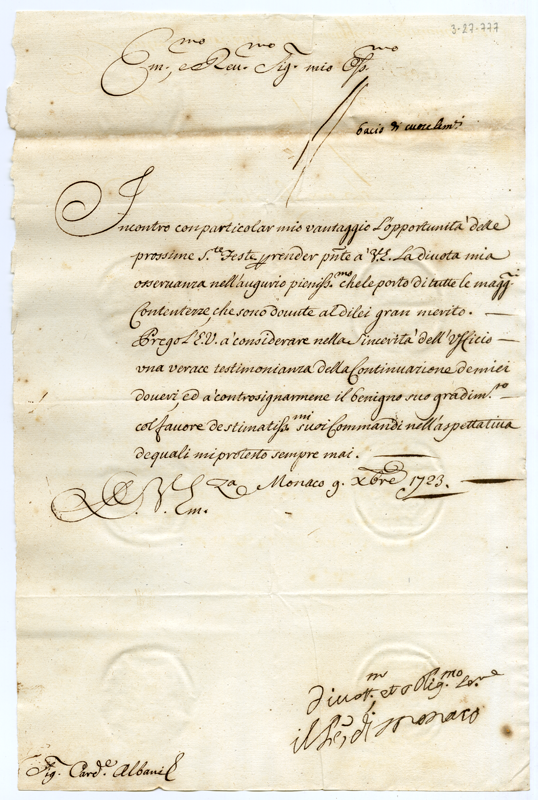 3-27-777
Em.mo e Reu.mo Sig. mio Oss.mo
bacio di cuore le m.i
Incontro con particolar mio vantaggio L'opportunità delle
prossime S.te Feste p render pnte à V.E. La diuota mia
osseruanza nell'augurio pieniss.mo che le porto di tutte le magg.ri
Contentezze che sono douute al di lei gran merito. —
Prego L'E.V. à considerare nella Sincerità dell'Vfficio —
vna verace testimonianza della Continuazione de miei
doueri, ed à controsignarmene il benigno suo gradim.to —
col fauore de stimatiss.mi suoi Commandi nell'aspettatiua
de quali mi protesto sempre mai. —
Di V. Em.za Monaco 9. Xbre 1723. —
diuot.m et obig.mo Se.re
il Pe. di Monaco
Sig. Card.e Albani